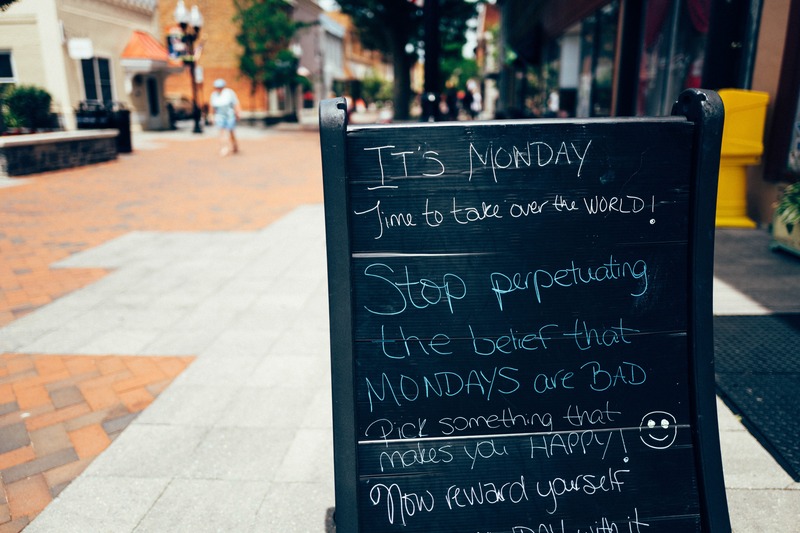 IT'S MONDAY
Time to take over the WORLD!
Stop perpetuating
the belief that
MONDAYS are BAD
Pick something that
makes you HAPPY!
Now reward yourself
DAY with it